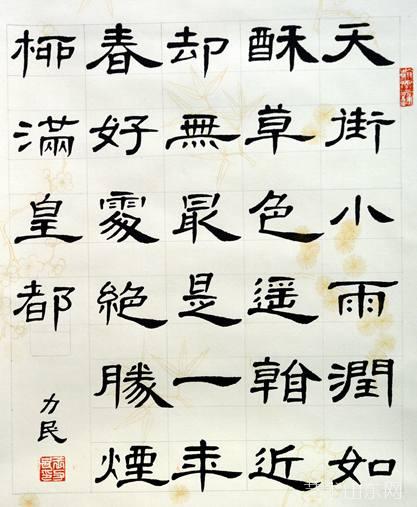 天街小雨潤如
酥草色遥看近
却無最是一年
春好處絶勝煙
柳滿皇都
力民
山东网